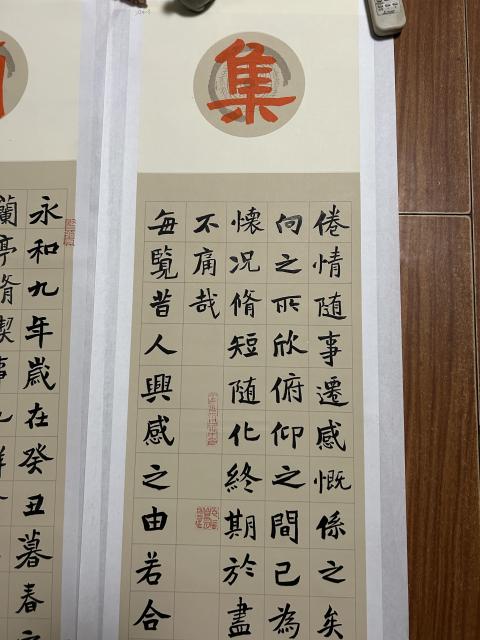 集
倦情随事遷感慨係之矣
向之所欣俯仰之間已為
懷況脩短随化終期於盡
不痛哉
每覽昔人興感之由若合
永和九年歲在癸丑暮春
蘭亭脩禊事也